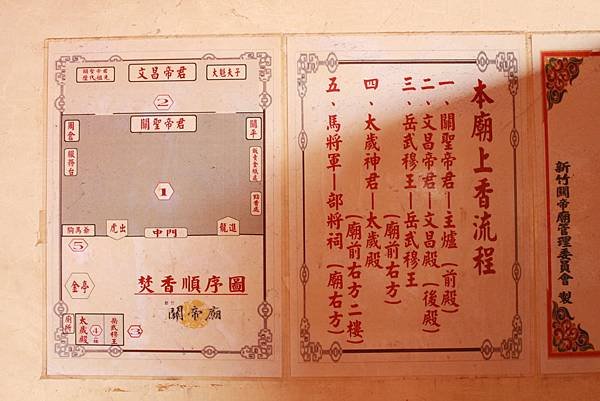 關聖帝君
歷代祖先
文昌帝君
大魁夫子
2
周倉
關聖帝君
關平
服務台
1
點香處
虎出
中門
龍進
5
金亭
焚香順序圖
新竹
關帝廟
廁所
太歲殿
4
二樓
岳武穆王
3
本廟上香流程
一、關聖帝君—主爐(前殿)
二、文昌帝君—文昌殿(後殿)
三、岳武穆王—岳武穆王
(廟前右方)
四、太歲神君—太歲殿
(廟前右方二樓)
五、馬將軍—部將祠(廟右方)
新竹關帝廟管理委員會 製